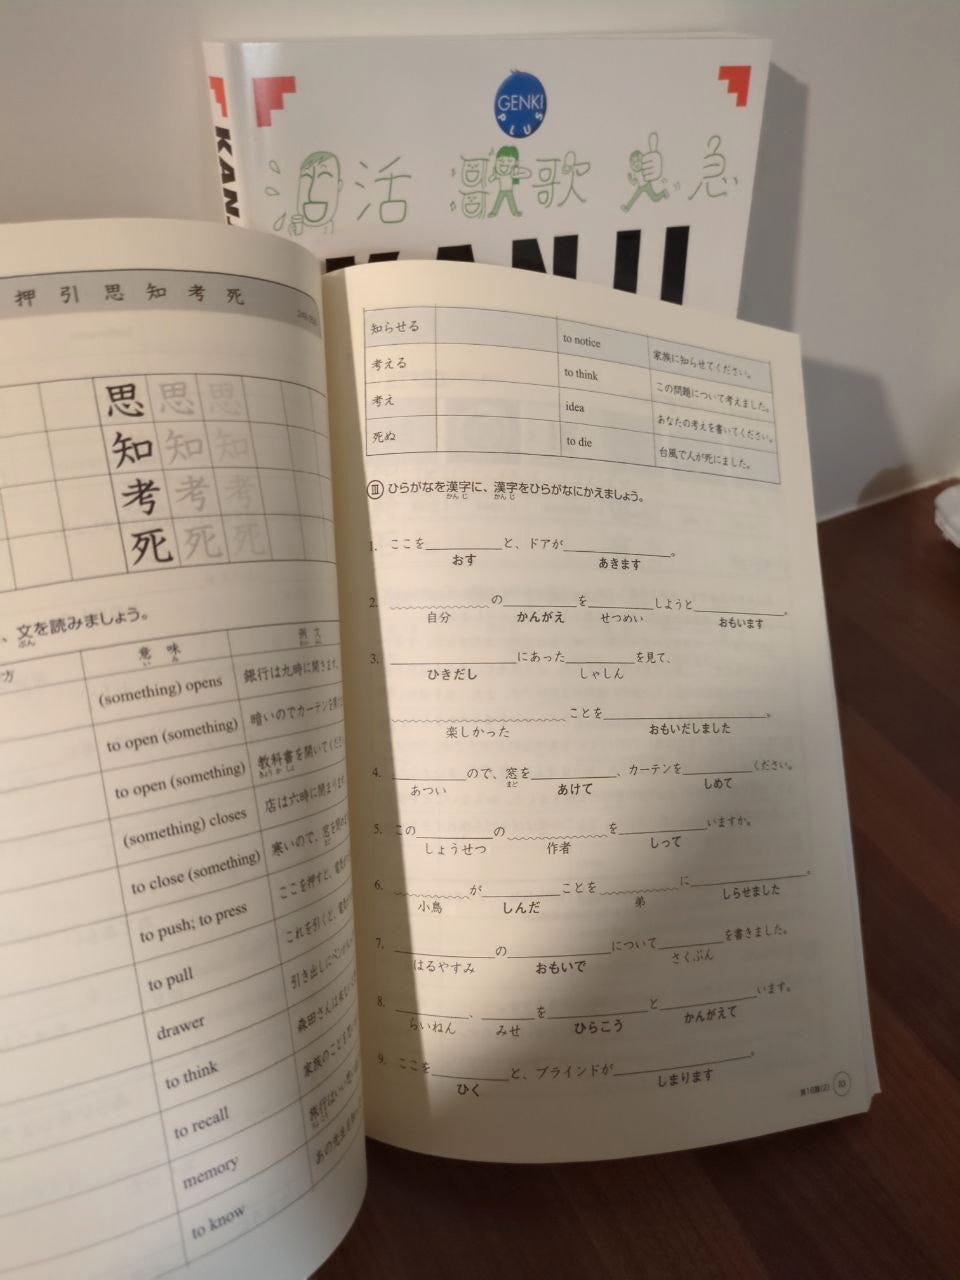 GENKI
PLUS
活 歌 急
KANJI
押 引 思 知 考 死
思 思 思
知 知 知
考 考 考
死 死 死
、文を読みましょう。
ぶん
方 意味 例文
い み れい ぶん
(something) opens 銀行は九時に開きます。
to open (something) 暗いのでカーテンを開け
to open (something) 教科書を開いてくだ
きょう か しょ
(something) closes 店は六時に閉まります
to close (something) 寒いので、窓を閉め
to push; to press ここを押すと、電気が
to pull これを引くと、電気
drawer 引き出しにペンが
to think 森田さんは来ない
to recall 家族のことを思い
memory 旅行はいい思い
りょこう
to know あの先生を知
知らせる to notice 家族に知らせてください。
考える to think この問題について考えました。
考え idea あなたの考えを書いてください。
死ぬ to die 台風で人が死にました。
Ⅲ ひらがなを漢字に、漢字をひらがなにかえましょう。
かん じ かん じ
1. ここを と、ドアが 。
おす あきます
2. の を しようと 。
自分 かんがえ せつめい おもいます
3. にあった を見て、
ひきだし しゃしん
ことを 。
楽しかった おもいだしました
4. ので、窓を 、カーテンを ください。
あつい まど あけて しめて
5. この の を いますか。
しょうせつ 作者 しって
6. が ことを に 。
小鳥 しんだ 弟 しらせました
7. の について を書きました。
はるやすみ おもいで さくぶん
8. 、 を と います。
らいねん みせ ひらこう かんがえて
9. ここを と、ブラインドが 。
ひく しまります
83